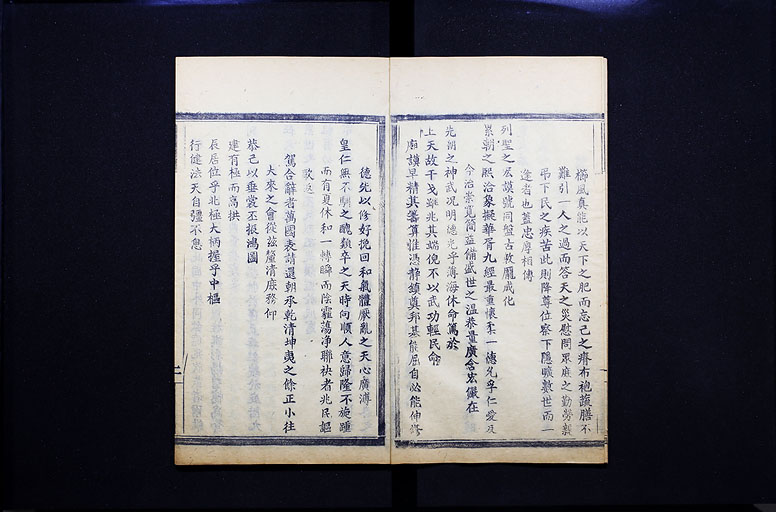 櫛風真能以天下之肥而忘己之瘠布袍蔬膳不
難引一人之過而答天之災慰問眾庭之勤勞親
弔下民之疾苦此則降尊位察下隱曠數世而一
逢者也蓋忠厚相傳
列聖之宏謨號同盤古教龐咸化
累朝之熙洽象擬華胥九經最重懷柔一德允孚仁愛及
今治崇寬簡益備盛世之溫恭量廣含宏儼在
先朝之神武況明德允孚薄海休命篤於
上天故干戈雖兆其端倪不以武功輕民命
廟謨早精其籌算惟憑靜鎮奠邦基能屈自必能伸修
德先以修好挽回和氣體厭亂之天心廣溥
皇仁無不馴之醜類卒之天時向順人意歸隆不旋踵
而有夏休和一轉瞬而陰霾蕩淨聯袂者兆民謳
歌返
駕合辭者萬國表請還朝承乾清坤夷之餘正小往
大來之會從茲釐清庶務仰
恭己以垂裳丕振鴻圖
建有極而高拱
辰居位乎北極大柄握乎中樞
行健法天自彊不息